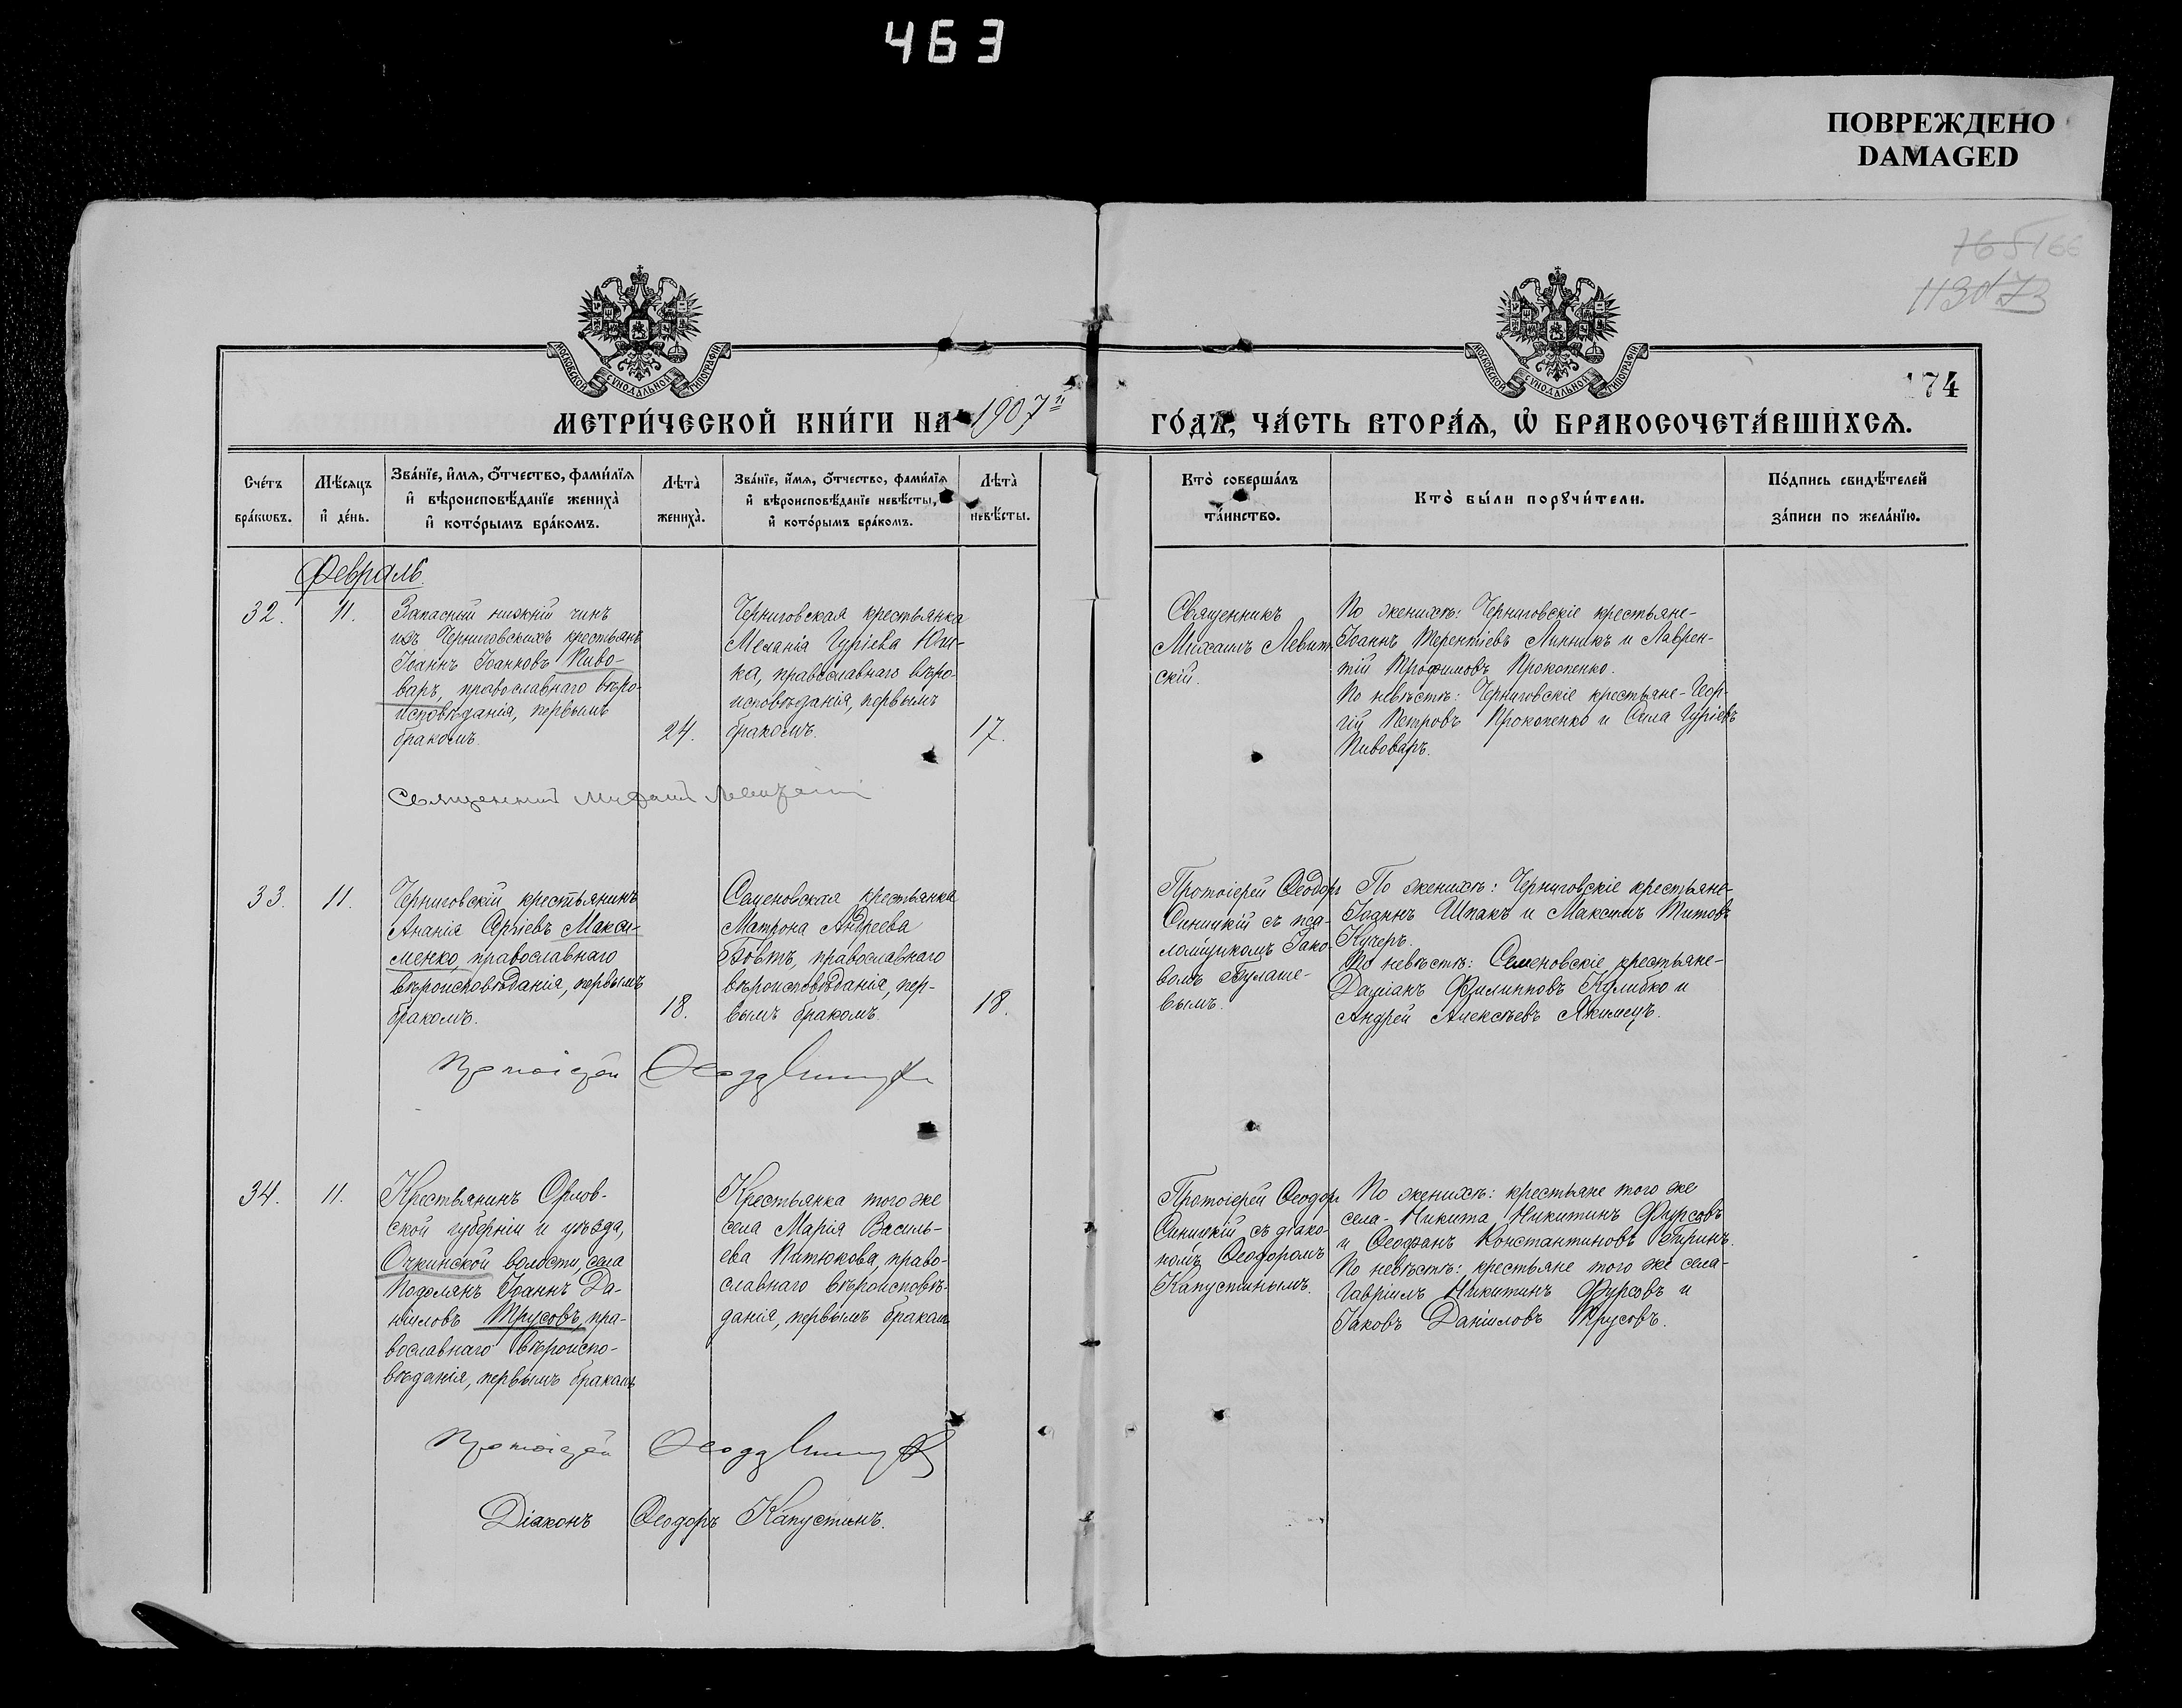 463
ПОВРЕЖДЕНО
DAMAGED
74
МЕТРИ́ЧЕСКОЙ КНИ́ГИ НА 1907й ГО́ДЪ, ЧА́СТЬ ВТОРА́Ѧ, Ѽ БРАКОСОЧЕТА́ВШИХСѦ.
Сче́тъ бра́кѡвъ.
Мѣ́сяцъ и҆ де́нь.
Зва́нїе, и҆́мѧ, ѻ҆́тчество, фами́лїѧ
и҆ вѣроисповѣ́данїе жениха̀
и҆ кото́рымъ бра́комъ.
Лѣта̀ жениха̀.
Зва́нїе, и҆́мѧ, ѻ҆́тчество, фами́лїѧ
и҆ вѣроисповѣ́данїе невѣ́сты,
и҆ кото́рымъ бра́комъ.
Лѣта̀ невѣ́сты.
Кто̀ соверша́лъ
та́инство.
Кто̀ бы́ли порꙋчи́тели.
По́дпись свидѣ́телей
за́писи по жела́нїю.
Февраль.
32.
11.
Запасный нижній чинъ
изъ Черниговскихъ крестьянъ
Іоаннъ Іоанновъ Пиво-
варъ, православнаго вѣро-
исповѣданія, первымъ
бракомъ.
24.
Черниговская крестьянка
Меланія Гуріева
ка, православнаго вѣро-
исповѣданія, первымъ
бракомъ.
17.
Священникъ
Михаилъ Левит-
скій.
По женихѣ: Черниговскіе крестьяне-
Іоаннъ Терентіевъ Линникъ и Лаврен-
тій Трофимовъ Прокопенко.
По невѣстѣ: Черниговскіе крестьяне-Геор-
гій Петровъ Прокопенко и Сила Гуріевъ
Пивоваръ.
Священникъ Михаилъ Левитскій
33.
11.
Черниговскій крестьянинъ
Ананія Сергіевъ Макси-
менко, православнаго
вѣроисповѣданія, первымъ
бракомъ.
18.
Семеновская крестьянка
Матрона Андреева
Бовтъ, православнаго
вѣроисповѣданія, пер-
вымъ бракомъ.
18.
Протоіерей Ѳеодоръ
Синицкій съ пса-
ломщикомъ Іако-
вомъ Булаше-
вымъ.
По женихѣ: Черниговскіе крестьяне-
Іоаннъ Шпакъ и Максимъ Титовъ
Кучеръ.
По невѣстѣ: Семеновскіе крестьяне-
Даміанъ Филипповъ Кулибко и
Андрей Алексѣевъ Якимецъ.
Протоіерей Ѳеодоръ Синицкій
34.
11.
Крестьянинъ Орлов-
ской губерніи и уѣзда,
Очкинской волости, села
Подолянъ Іоаннъ Да-
ніиловъ Трусовъ, пра-
вославнаго вѣроиспо-
вѣданія, первымъ бракомъ
Крестьянка того же
села Марія Василь-
ева Питюкова, право-
славнаго вѣроисповѣ-
данія, первымъ бракомъ
Протоіерей Ѳеодоръ
Синицкій съ діако-
номъ Ѳеодоромъ
Капустинымъ.
По женихѣ: крестьяне того же
села-Никита Никитинъ Фурсовъ
и Ѳеофанъ Константиновъ Бгринъ.
По невѣстѣ: крестьяне того же села-
Гавріилъ Никитинъ Фурсовъ и
Іаковъ Даніиловъ Трусовъ.
Протоіерей Ѳеодоръ Синицкій
Діаконъ Ѳеодоръ Капустинъ.